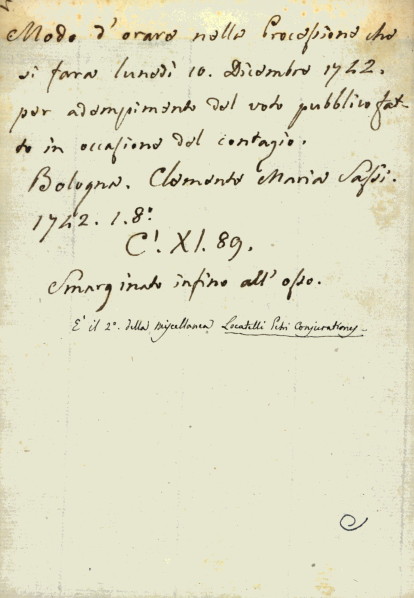 Modo d'orare nella Processione che
si farà lunedì 10. Dicembre 1742.
per adempimento del voto pubblico fat-
to in occasione del contagio.
Bologna. Clemente Maria Sassi.
1742. 1. 8.°
C!. XI. 89.
Smarginato infino all' osso.
E' il 2°. della Miscellanea Locatelli Petri Conjurationes